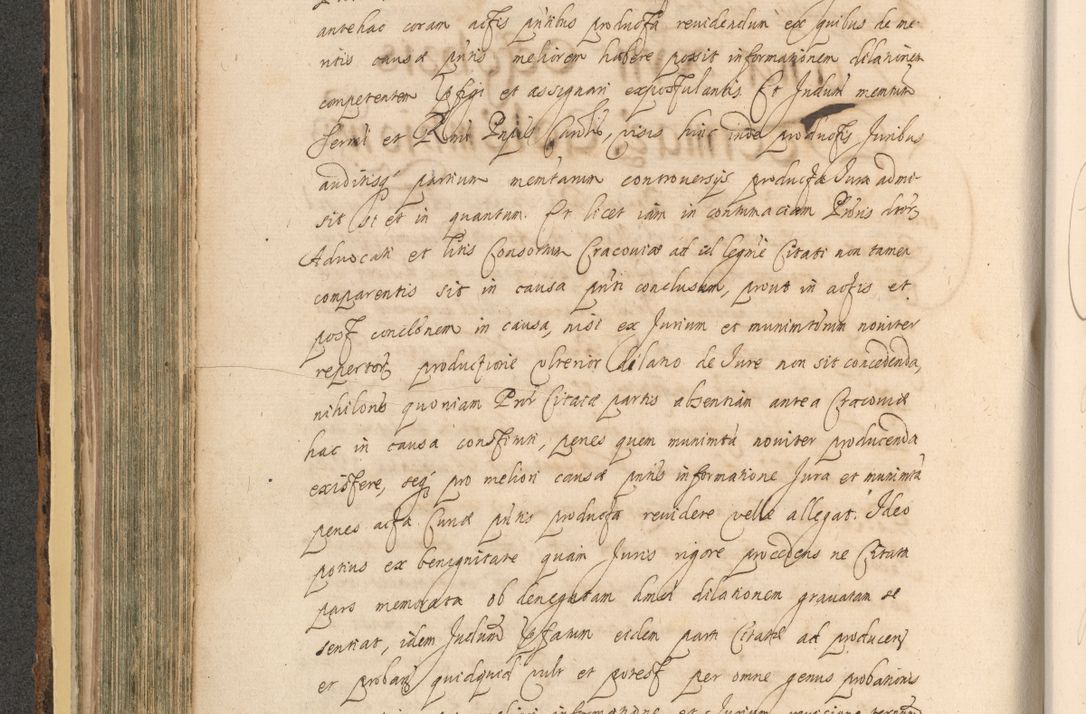 antehac coram actis pñtibus producta reuidendum ex quibus de me
ritis causæ pñtis meliorem habere possit informationem dilationem
competentem Ipsi et assignari expostulantis. Et Iudicium memratum
Sermi et Rmi Pnpis Caroli, visis hinc inde productis Iuribus
auditisqȝ partium memratarum controuersijs producta Iura admi-
sit si et in quantum. Et licet iam in contumaciam
Aduocati et litis Consortum Cracouiæ ad id legme Citati non tamen
comparentis sit in causa pñti conclusum, prout in actis et
post conclonem in causa, nisi ex Iurium et munimtorum nouiter
repertorȝ productione vlterior dilatio de Iure non sit concedenda,
nihilons quoniam Pror Citatæ partis absentiam antea Cracouiæ
hac in causa constituti, penes quem munimta nouiter producenda
existere, seqȝ pro meliori causæ pñtis informatione Iura et munimta
penes acta Causæ pñtis producta reuidere velle allegat. Ideo
potius ex benignitate quam Iuris rigore procedens ne Citata
pars memorata ob denegatam dilationem grauatam se
sentiat, idem Iudicium eidem parti Citatæ ad producenȝ
et probanȝ quidquid vult et potest per omne genus probationis
informatione et Iurium reuisione